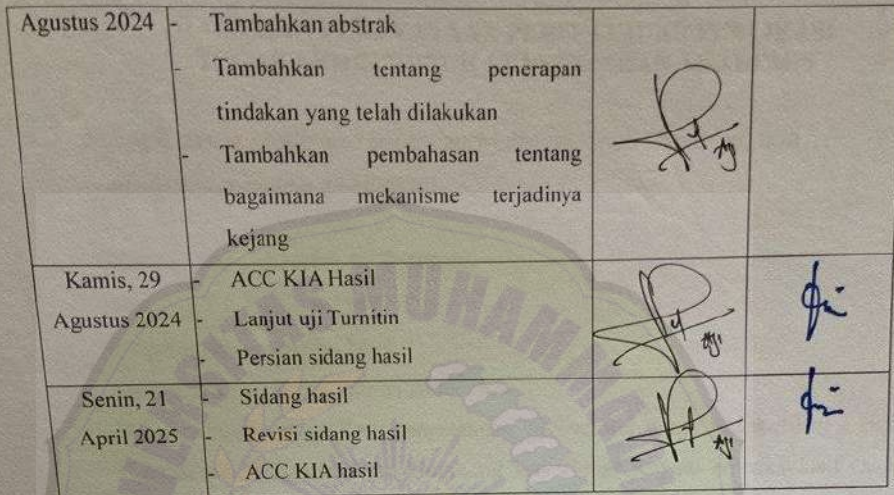 Agustus 2024 - Tambahkan abstrak
- Tambahkan tentang penerapan
tindakan yang telah dilakukan
- Tambahkan pembahasan tentang
bagaimana mekanisme terjadinya
kejang
Kamis, 29 - ACC KIA Hasil
Agustus 2024 - Lanjut uji Turnitin
- Persian sidang hasil
Senin, 21 - Sidang hasil
April 2025 - Revisi sidang hasil
- ACC KIA hasil